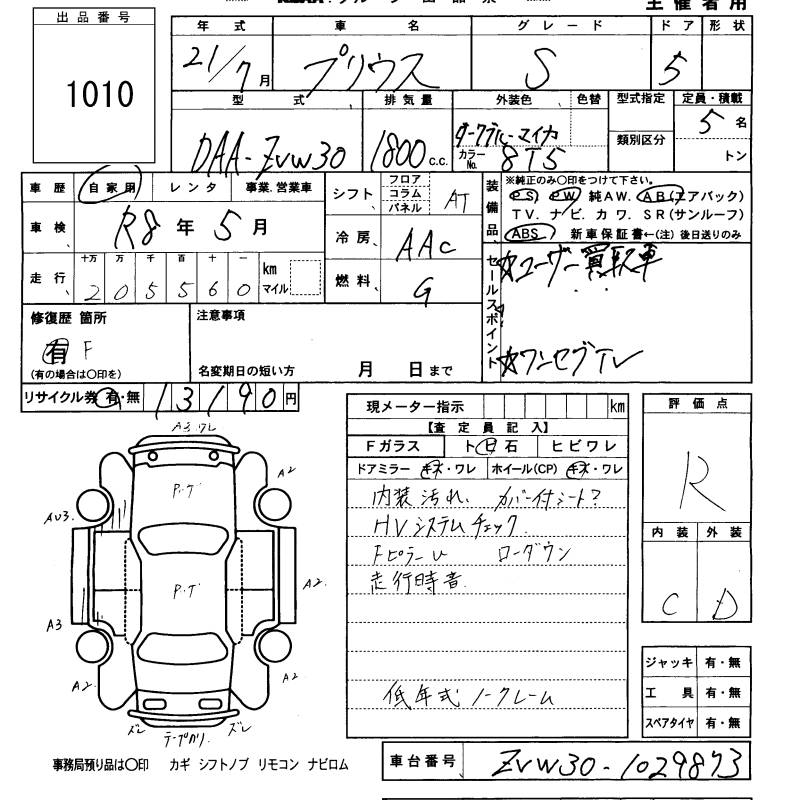 主催者用
出品番号
1010
年式 車名 グレード ドア 形状
21/7月 プリウス S 5
型式 排気量 外装色 色替 型式指定 定員・積載
DAA-ZVW30 1800c.c. ダークブルーマイカ カラーNo. 8T5 類別区分 5名 トン
車歴 自家用 レンタ 事業.営業車
車検 R8年5月
走行 十万 万 千 百 十 一 km マイル
205560
シフト、 フロア コラム パネル AT
冷房、 AAC
燃料、 G
装備品、
※純正のみ〇印をつけて下さい。
PS. PW. 純AW. AB(エアバック)
TV. ナビ. カワ. SR(サンルーフ)
ABS. 新車保証書←(注)後日送りのみ
セールスポイント
☆ユーザー買取車
☆ワンセグTV
修復歴 箇所
有 F
(有の場合は〇印を)
注意事項
名変期日の短い方 月 日まで
リサイクル券 有・無 13190円
現メーター指示 km
【査定員記入】
Fガラス ト ヒ 石 ヒビワレ
ドアミラー キズ・ワレ ホイール(CP) キズ・ワレ
内装汚れ、 カバー付シート?
HVシステムチェック
FピラーU ローダウン
走行時音
低年式ノークレーム
評価点
R
内装 外装
C D
ジャッキ 有・無
工具 有・無
スペアタイヤ 有・無
A3.ワレ
P.ゲ
A2
AU3.
P.ゲ
A2.
A3
A2.
A2
ズレ ズレ
事務局預り品は〇印 カギ シフトノブ リモコン ナビロム
車台番号 ZVW30-1029873